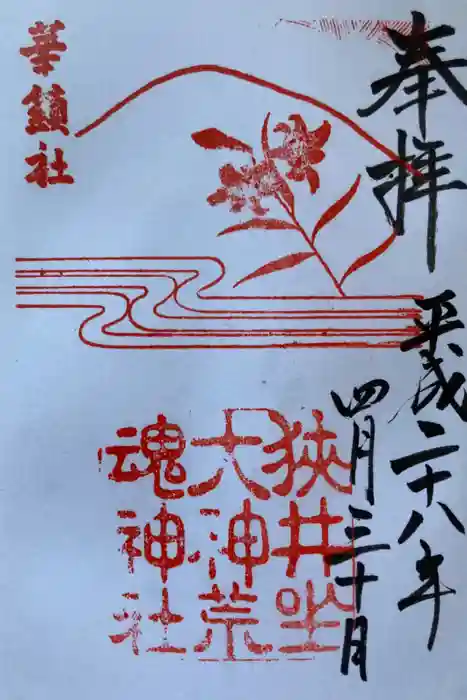 奉拝
平成二十八年
四月三十日
狹井坐
大神荒
魂神社
華鎮社